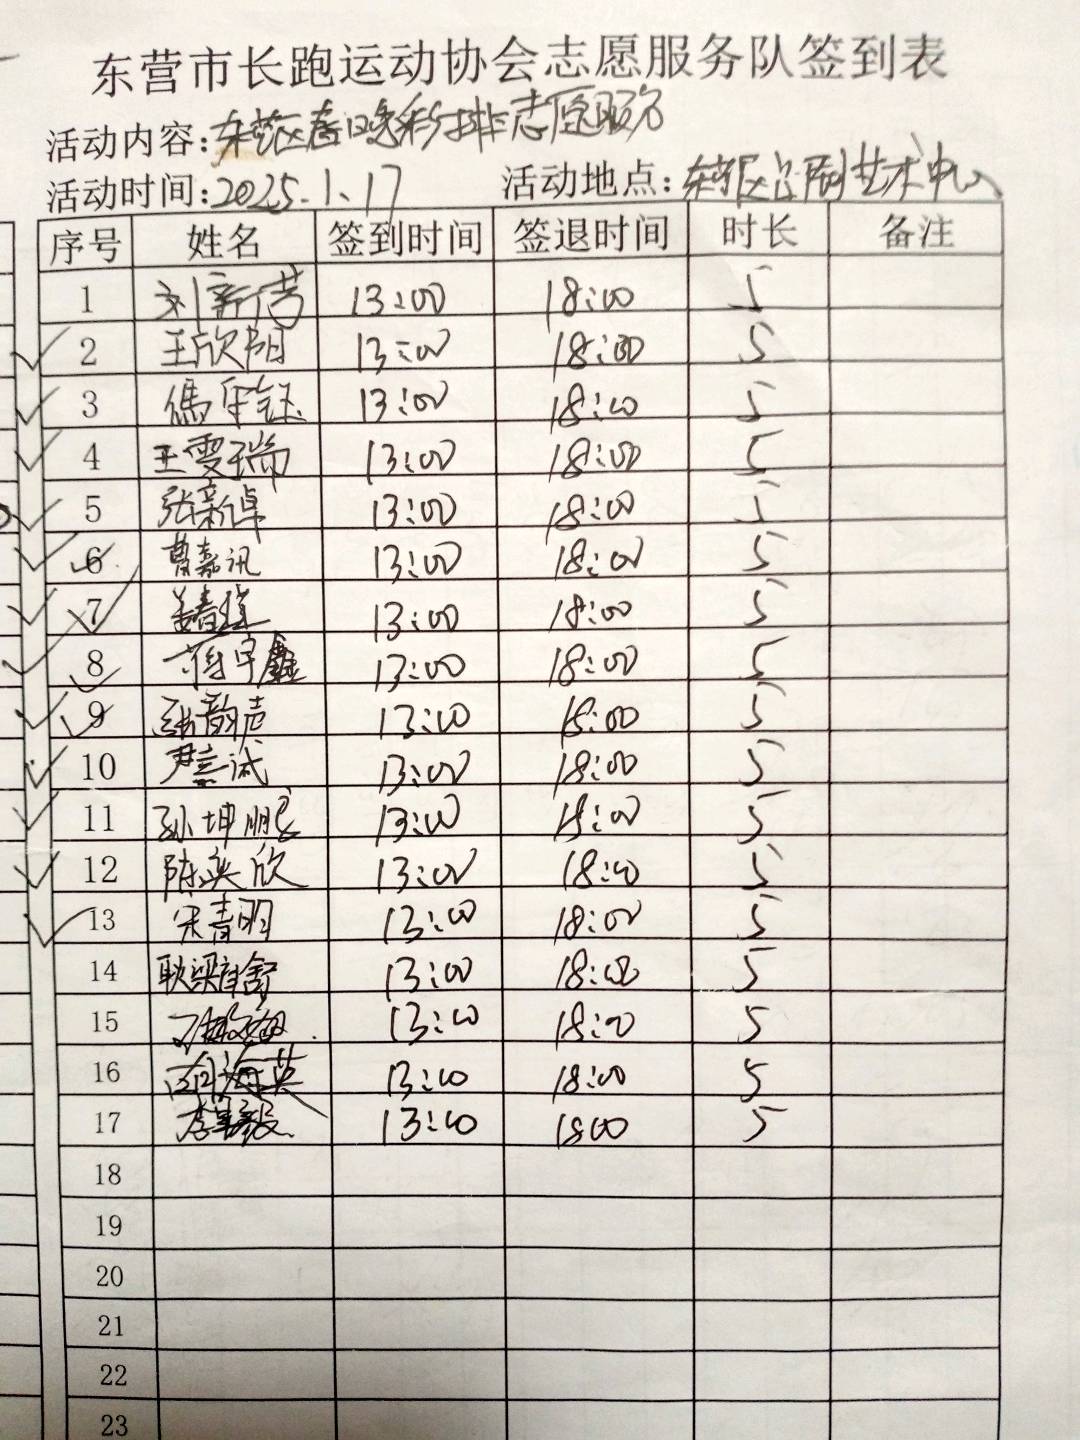 东营市长跑运动协会志愿服务队签到表
活动内容:东营区春晚彩排志愿服务
活动时间:2025.1.17 活动地点:东营区吕剧艺术中心
序号 姓名 签到时间 签退时间 时长 备注
1 刘新 13:00 18:00 5
2 王欣阳 13:00 18:00 5
3 钰 13:00 18:00 5
4 王雯瑞 13:00 18:00 5
5 张新卓 13:00 18:00 5
6 曹嘉讯 13:00 18:00 5
7 姜春 13:00 18:00 5
8 蒋宇鑫 13:00 18:00 5
9 张韵 13:00 18:00 5
10 尹嘉诚 13:00 18:00 5
11 孙坤鹏 13:00 18:00 5
12 陈奕欣 13:00 18:00 5
13 宋青明 13:00 18:00 5
14 耿梁 舒 13:00 18:00 5
15 13:00 18:00 5
16 海英 13:00 18:00 5
17 李 毅 13:00 1800 5
18
19
20
21
22
23